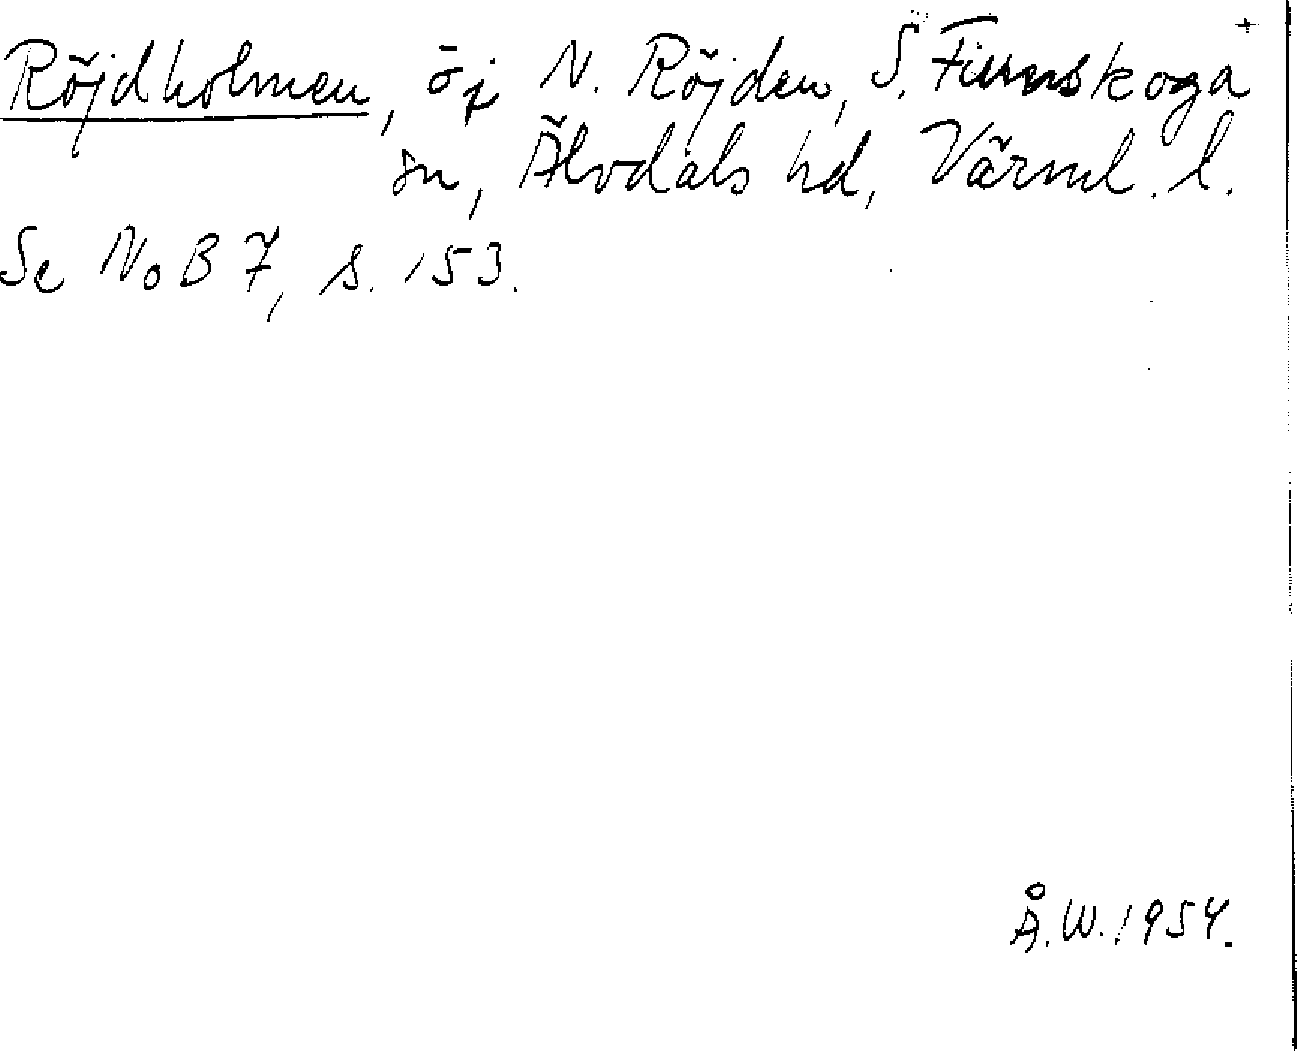 Röjdholmen, ö i N. Röjden, S. Finnskoga +
sn, Älvdals hd, Värml. l.
Se NoB 7, s. 153.
Å.W. 1954.